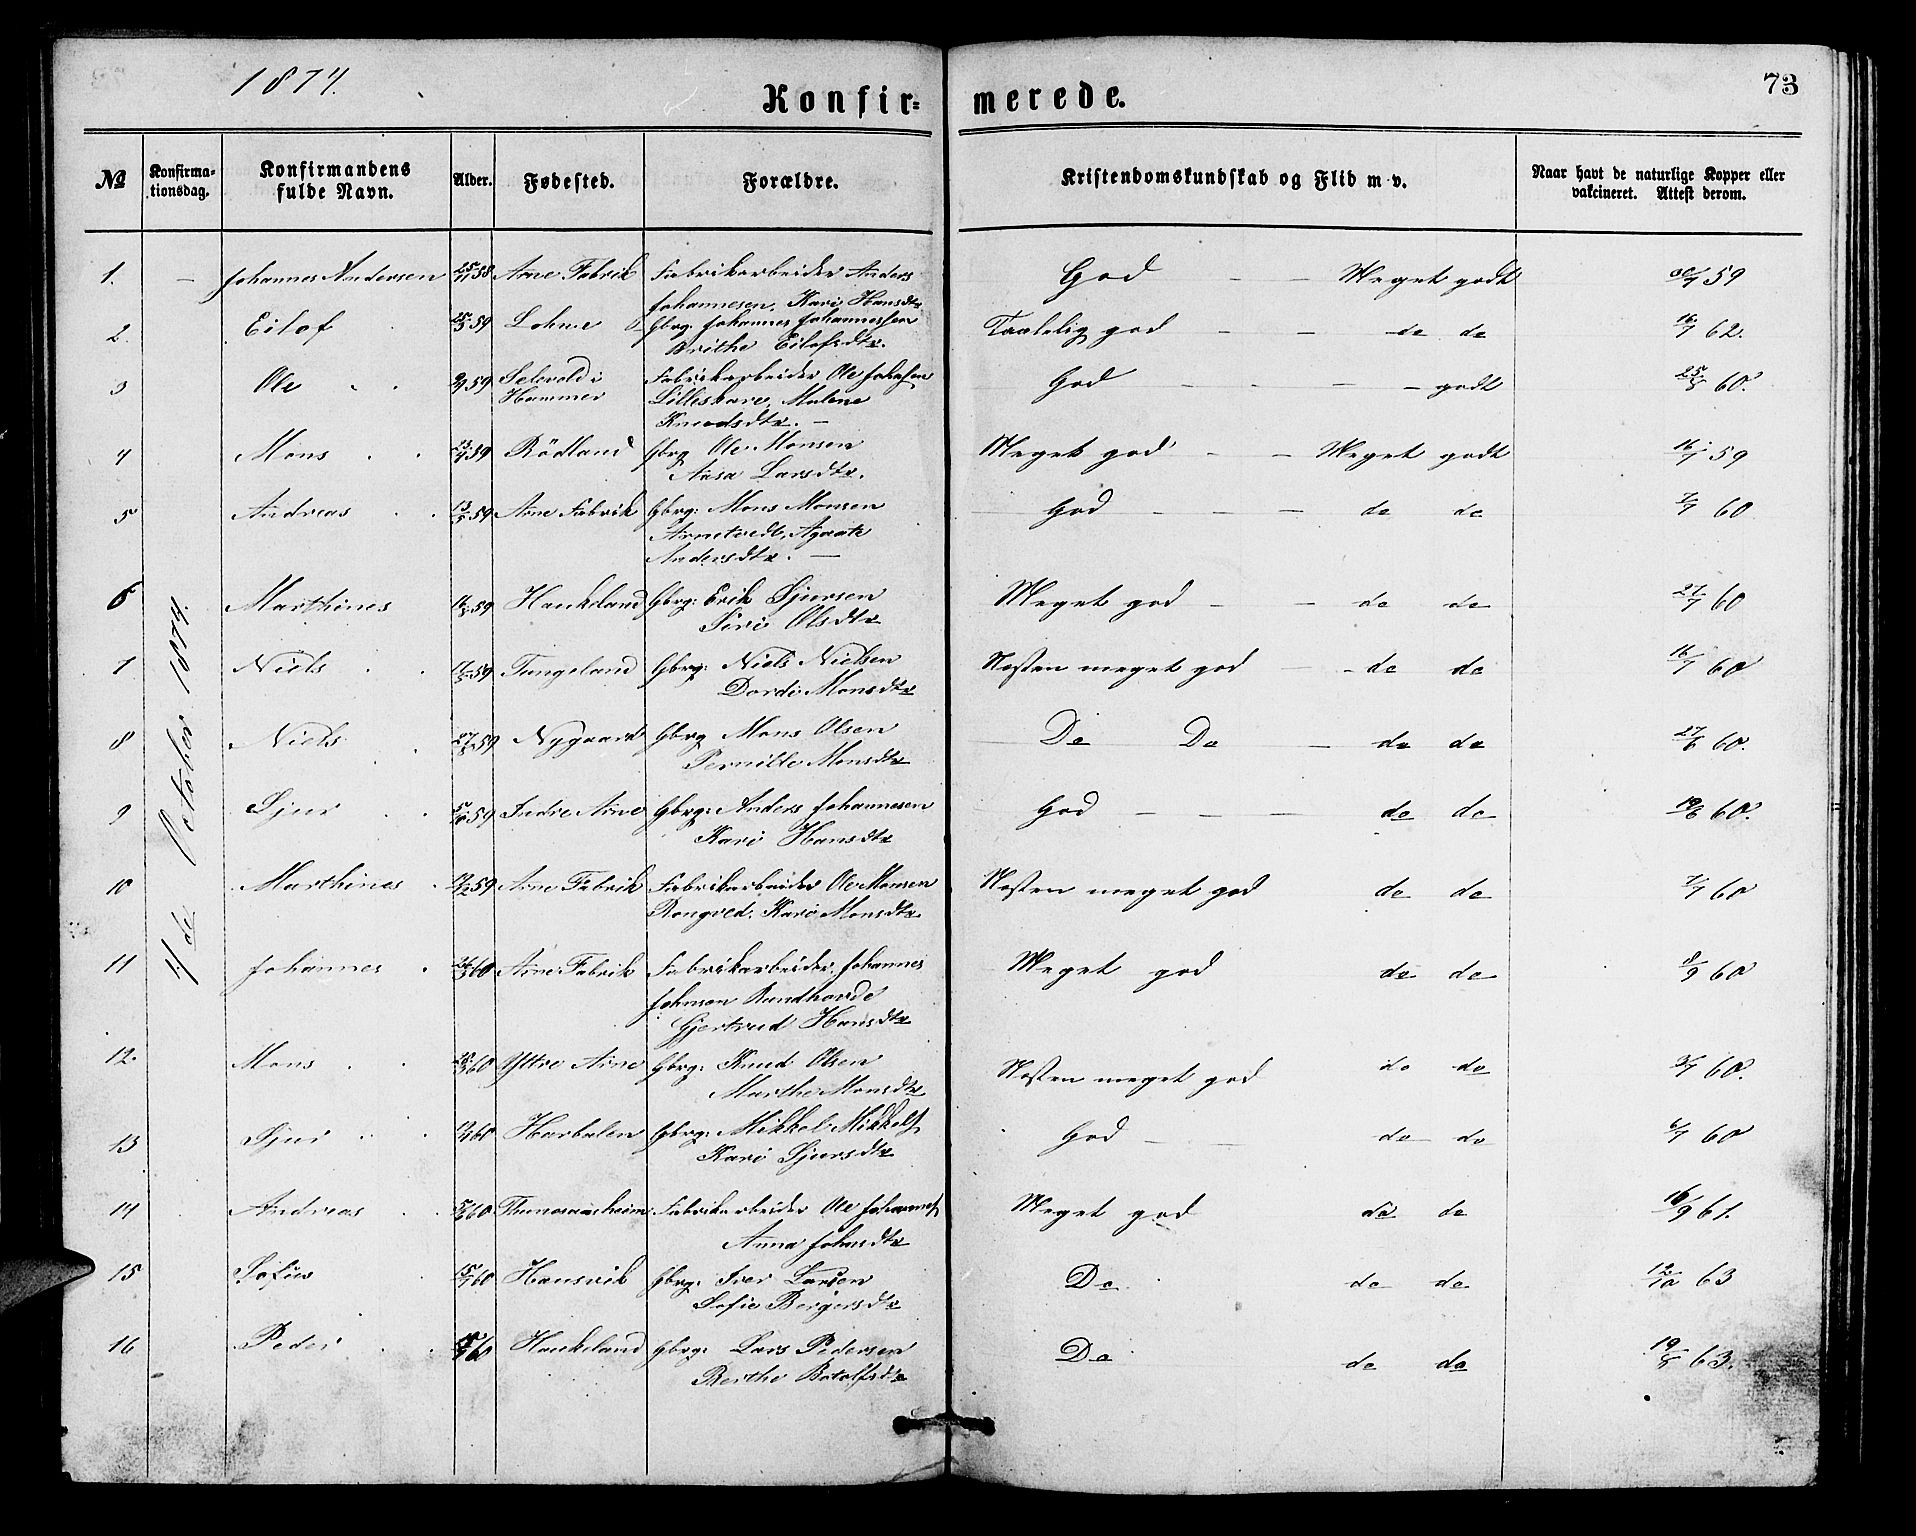 1874.
Konfir- merede. 73
No Konfirmationsdag. Konfirmandens fulde Navn. Alder. Fødested. Forældre. Kristendomskundskab og Flid m. v. Naar havt de naturlige Kopper eller vakcineret. Attest derom.
4de October 1874.
1. — Johannes Andersen 25/11 58 Arne Fabrik Fabrikarbeider Anders God — — Meget godt 59
Johannesen, Kari Hansdtr
2. Eilof 59 Lohne Gbrg. Johannes Johannessen Taalelig god — — do do 16/7 62.
Brithe Eilofsdtr.
3 Ole 59 Selevold i Fabrikarbeider Ole Johnsen God — — — — godt 25/8 60.
Hammer Lilleskare, Malene
Knudsdtr. —
4 Mons 59 Rödland Gbrg Ole Monsen Meget god — — Meget godt 16/7 59
Aasa Larsdtr.
5 Andreas 13/5 59 Arne Fabrik Gbrg: Mons Monsen God — — — do do 7/7 60
Arnetvedt, Agaate
Andersdtr. —
6 Marthines 16/8 59 Haukeland Gbrg: Erik Sjursen Meget god — — do do 27/7 60
Siri Olsdtr
7 Niels 59 Tungeland Gbrg: Niels Nielsen Næsten meget god — — do do 16/7 60
Dordi Monsdtr
8 Niels 27/8 59 Nygaard Gbrg Mons Olsen Do Do — do do 27/6 60.
Pernille Monsdtr
9 Sjur 5/10 59 Indre Arne Gbrg: Anders Johannesen God — — — do do 19/6 60.
Kari Hansdtr
10 Marthines 59 Arne Fabrik Fabrikarbeider Ole Monsen Næsten meget god do do 7/7 60
Rongved, Kari Monsdtr
11 Johannes 60 Arne Fabrik Fabrikarbeider Johannes Meget god do do 8/9 60
Johnson Rundhovde
Gjertrud Hansdtr
12. Mons 60 Yttre Arne Gbrg: Knud Olsen Næsten meget god do do 60.
Marthe Monsdtr
13 Sjur 60 Harbalen Gbrg: Mikkel Mikkels. God — — do do 6/7 60
Kari Sjursdtr
14 Andreas 60 Fabrikarbeider Ole Johannes. Meget god do do 16/9 61.
Anna Johnsdtr
15 Sofus 60 Hausvik Gbrg: Iver Larsen Do do do 12/10 63
Sofie Bergersdtr
16 Peder 60 Haukeland Gbrg: Lars Pedersen Do do do 19/8 63.
Berthe Botolfsdtr